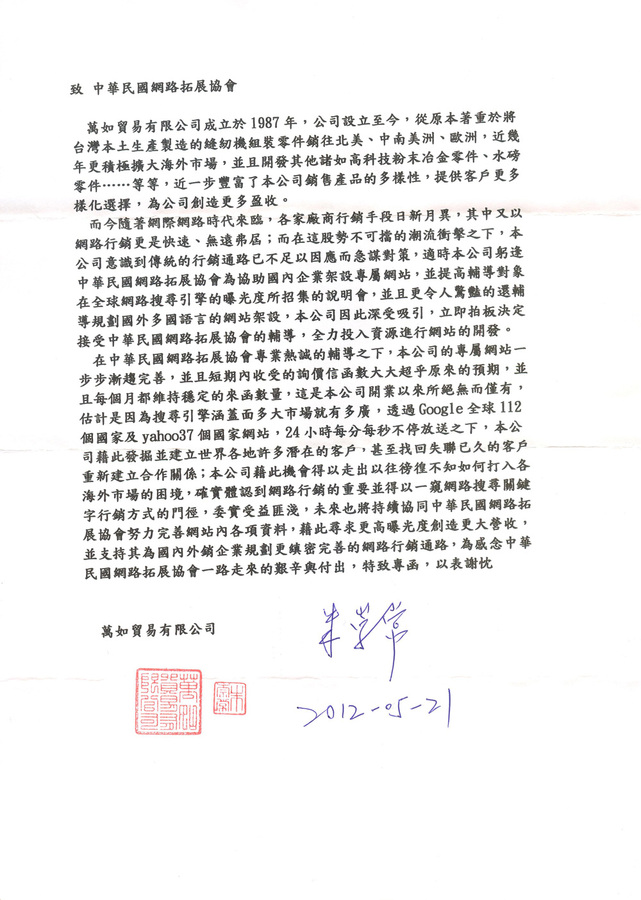 致 中華民國網路拓展協會
萬如貿易有限公司成立於1987年，公司設立至今，從原本著重於將
台灣本土生產製造的縫紉機組裝零件銷往北美、中南美洲、歐洲，近幾
年更積極擴大海外市場，並且開發其他諸如高科技粉末冶金零件、水磅
零件……等等，近一步豐富了本公司銷售產品的多樣性，提供客戶更多
樣化選擇，為公司創造更多盈收。
而今隨著網際網路時代來臨，各家廠商行銷手段日新月異，其中又以
網路行銷更是快速、無遠弗屆；而在這股勢不可擋的潮流衝擊之下，本
公司意識到傳統的行銷通路已不足以因應而急謀對策，適時本公司躬逢
中華民國網路拓展協會為協助國內企業架設專屬網站，並提高輔導對象
在全球網路搜尋引擎的曝光度所招集的說明會，並且更令人驚豔的還輔
導規劃國外多國語言的網站架設，本公司因此深受吸引，立即拍板決定
接受中華民國網路拓展協會的輔導，全力投入資源進行網站的開發。
在中華民國網路拓展協會專業熱誠的輔導之下，本公司的專屬網站一
步步漸趨完善，並且短期內收受的詢價信函數大大超乎原來的預期，並
且每個月都維持穩定的來函數量，這是本公司開業以來所絕無而僅有，
估計是因為搜尋引擎涵蓋面多大市場就有多廣，透過Google全球112
個國家及yahoo37個國家網站，24小時每分每秒不停放送之下，本公
司藉此發掘並建立世界各地許多潛在的客戶，甚至找回失聯已久的客戶
重新建立合作關係；本公司藉此機會得以走出以往徬徨不知如何打入各
海外市場的困境，確實體認到網路行銷的重要並得以一窺網路搜尋關鍵
字行銷方式的門徑，委實受益匪淺，未來也將持續協同中華民國網路拓
展協會努力完善網站內各項資料，藉此尋求更高曝光度創造更大營收，
並支持其為國內外銷企業規劃更鎮密完善的網路行銷通路，為感念中華
民國網路拓展協會一路走來的艱辛與付出，特致專函，以表謝忱
萬如貿易有限公司
2012-05-21